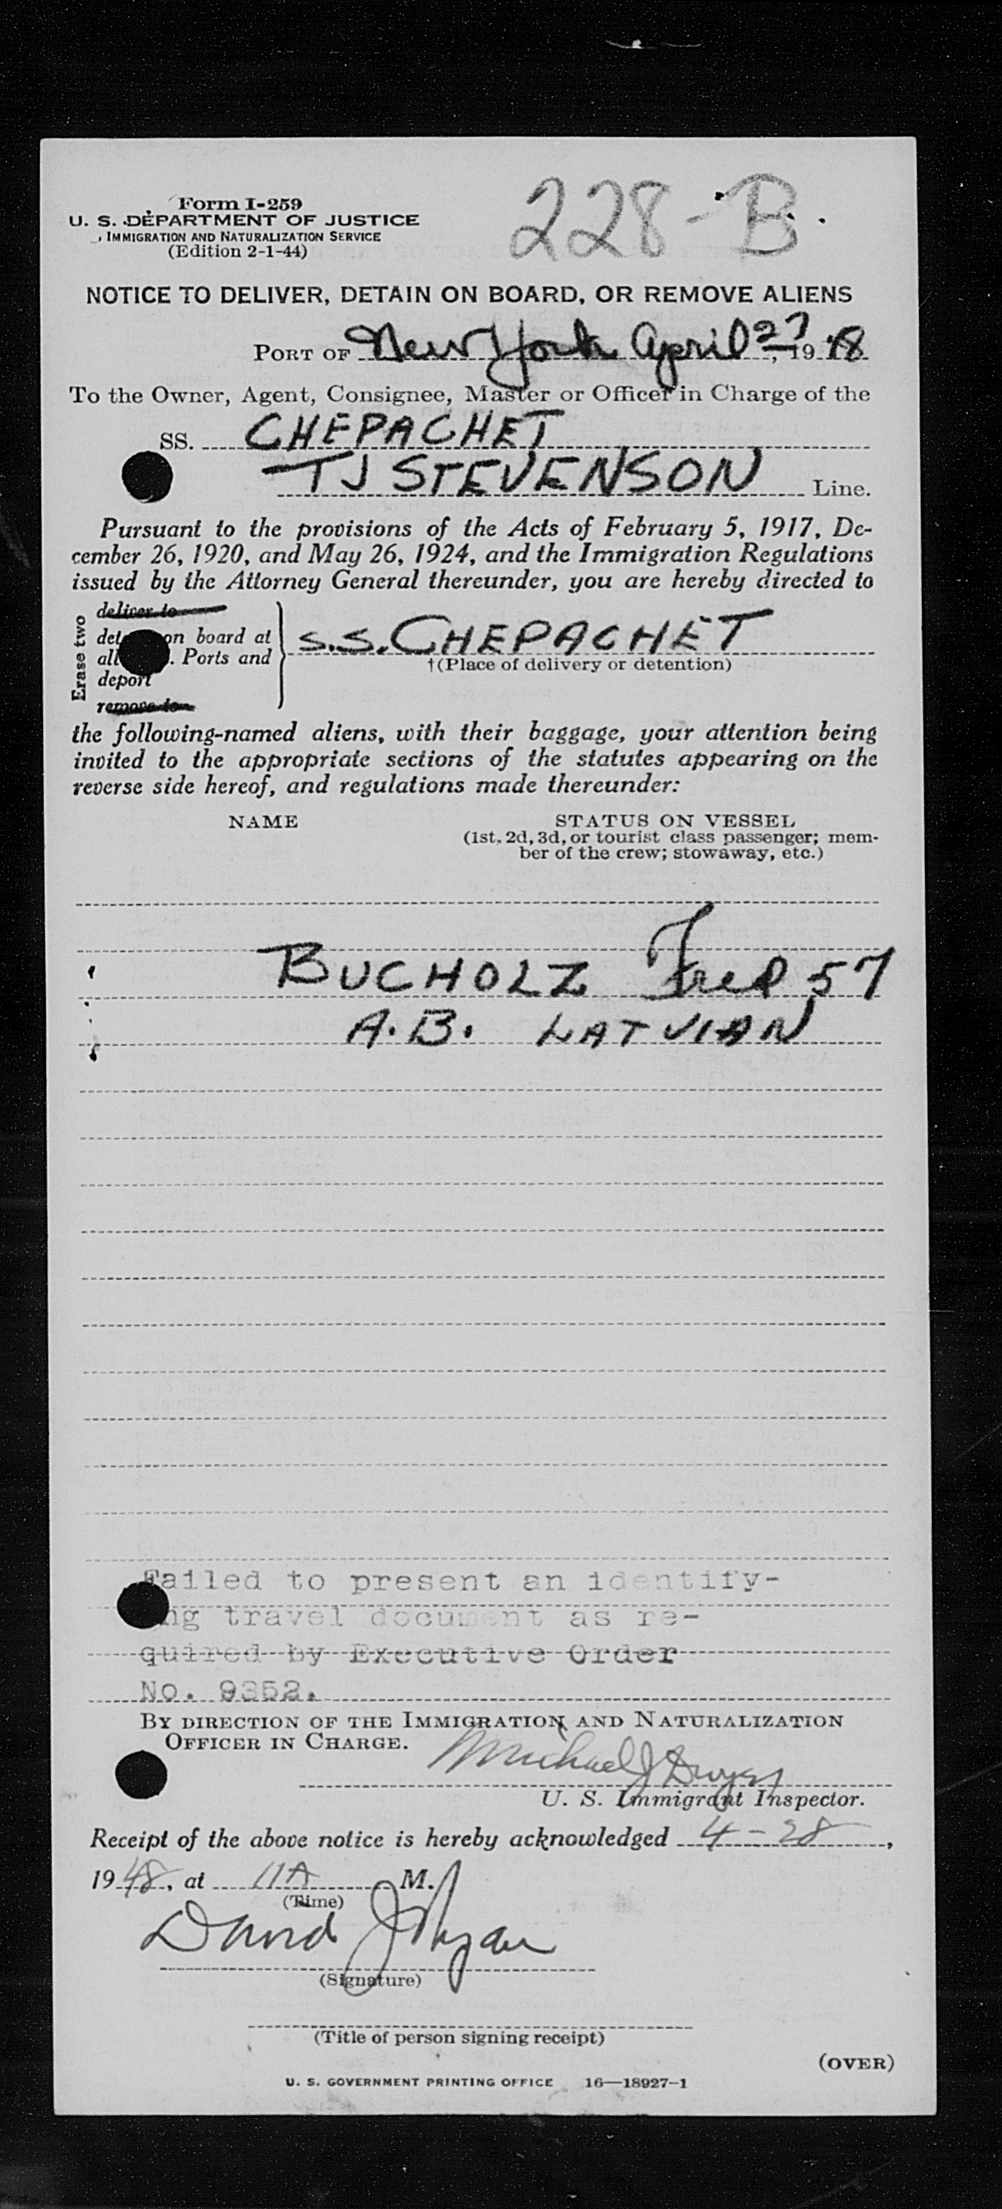 Form I-259
228-B
U. S. DEPARTMENT OF JUSTICE
IMMIGRATION AND NATURALIZATION SERVICE
(Edition 2-1-44)
NOTICE TO DELIVER, DETAIN ON BOARD, OR REMOVE ALIENS
PORT OF New York April 27, 1948
To the Owner, Agent, Consignee, Master or Officer in Charge of the
SS. CHEPACHET
TJ STEVENSON Line.
Pursuant to the provisions of the Acts of February 5, 1917, De-
cember 26, 1920, and May 26, 1924, and the Immigration Regulations
issued by the Attorney General thereunder, you are hereby directed to
Erase two
deliver to
on board at
all . Ports and
deport
remove to
S.S. CHEPACHET
†(Place of delivery or detention)
the following-named aliens, with their baggage, your attention being
invited to the appropriate sections of the statutes appearing on the
reverse side hereof, and regulations made thereunder:
NAME
STATUS ON VESSEL
(1st, 2d, 3d, or tourist class passenger; mem-
ber of the crew; stowaway, etc.)
BUCHOLZ Fred 57
A.B. LATVIAN
Failed to present an identify-
ing travel document as re-
quired by Executive Order
No. 9352.
BY DIRECTION OF THE IMMIGRATION AND NATURALIZATION
OFFICER IN CHARGE.
Michael J Dwyer
U. S. Immigrant Inspector.
Receipt of the above notice is hereby acknowledged 4-28,
1948, at 11A M.
(Time)
David J Ryan
(Signature)
(Title of person signing receipt)
(OVER)
U. S. GOVERNMENT PRINTING OFFICE 16—18927-1